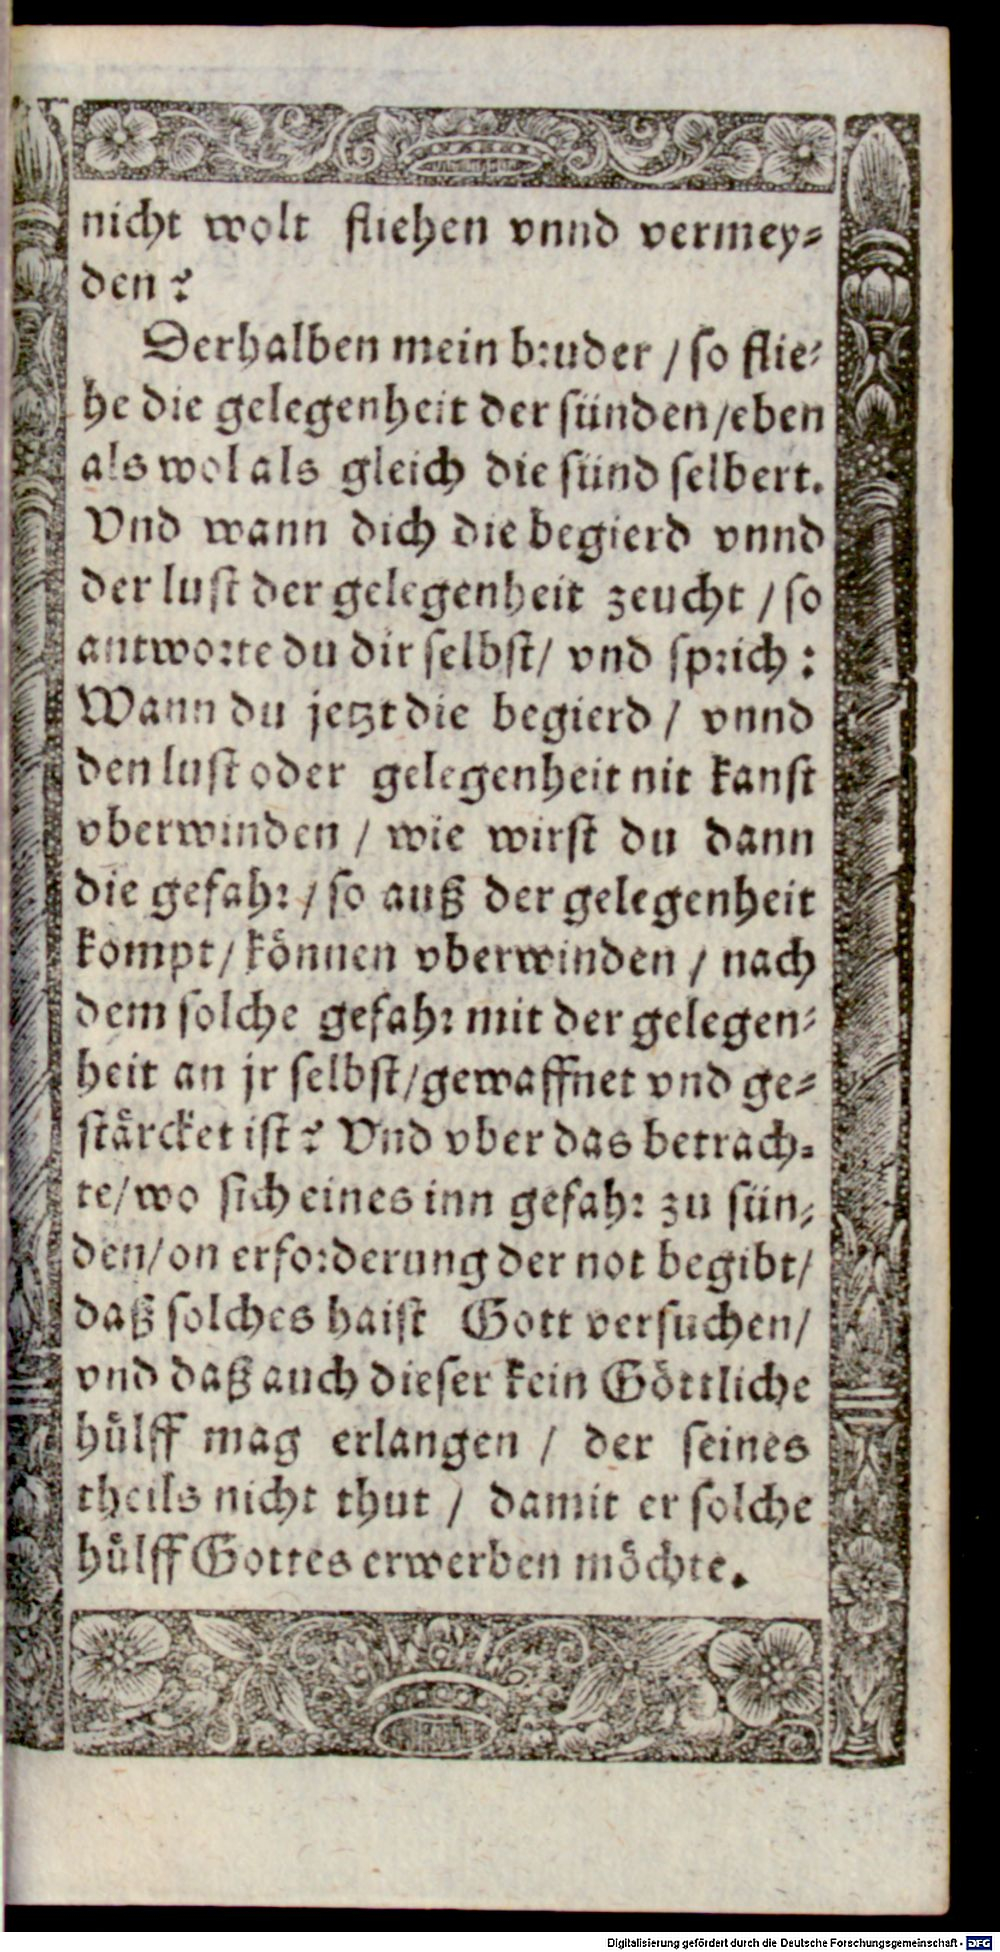 nicht wolt fliehen vnnd vermey⸗
den?
Derhalben mein bruder / so flie⸗
he die gelegenheit der sünden /eben
als wol als gleich die sünd selbert.
Vnd wann dich die begierd vnnd
der lust der gelegenheit zeucht / so
antworte du dir selbst/ vnd sprich:
Wann du jetzt die begierd / vnnd
den lust oder gelegenheit nit kanst
vberwinden / wie wirst du dann
die gefahr / so auß der gelegenheit
kompt/ koͤnnen vberwinden / nach
dem solche gefahr mit der gelegen⸗
heit an jr selbst/gewaffnet vnd ge⸗
staͤrcket ist? Vnd vber das betrach⸗
te/wo sich eines inn gefahr zu sün⸗
den/on erforderung der not begibt/
daß solches haist Gott versuchen/
vnd daß auch dieser kein Goͤttliche
huͤlff mag erlangen / der seines
theils nicht thut / damit er solche
huͤlff Gottes erwerben moͤchte.
Digitalisierung gefördert durch die Deutsche Forschungsgemeinschaft - DFG